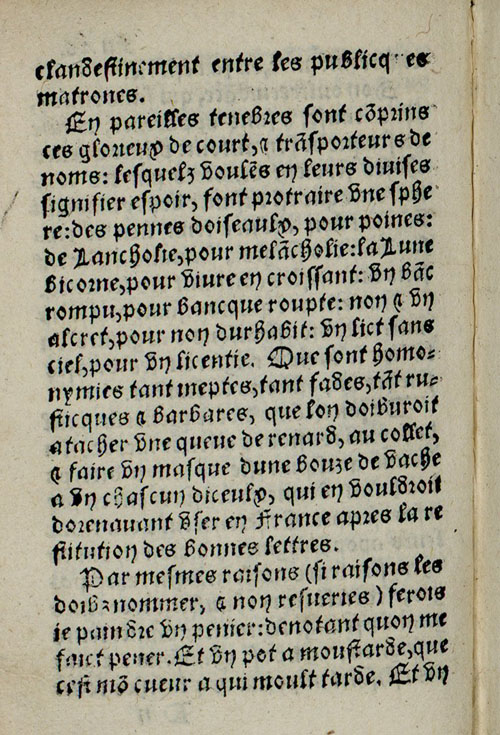 clandestinement entre les publicques
matrones.
En pareilles tenebres sont cōprins
ces glorieux de court, & trāsporteurs de
noms: lesquelz voulēs en leurs divises
signifier espoir, font protraire vne sphe
re: des pennes doiseaulx, pour poines:
de Lancholie, pour melācholie: la Lune
bicorne, pour viure en croissant: vn bāc
rompu, pour bancque roupte: non & vn
alcret, pour non durhabit: vn lict sans
ciel, pour vn licentie. Que sont homo=
nymies tant ineptes, tant fades, tāt ru=
sticques & barbares, que lon doiburoit
atacher vne queue de renard, au collet,
& faire vn masque dune bouze de vache
a vn chascun diceulx, qui en vouldroit
dorenauant vser en France apres la re
stitution des bonnes lettres.
Par mesmes raisons (si raisons les
doibz nommer, & non resueries) ferois
ie paindre vn penier: denotant quon me
faict pener. Et vn pot a moustarde, que
cest mō cueur a qui moult tarde. Et vn